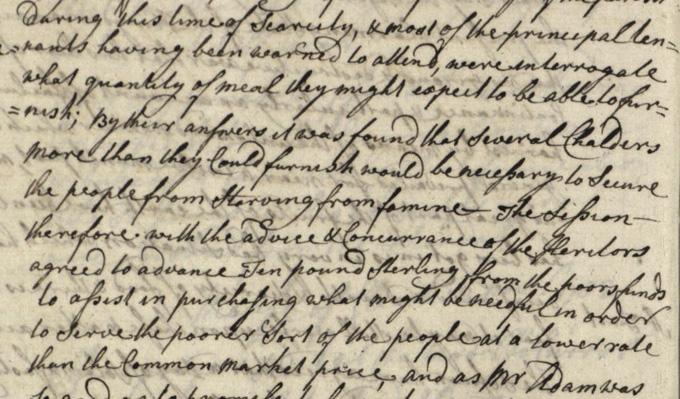 During this time of Scarcity, & most of the principal ten=
=nants having been warned to attend, were interrogate
what quantity of meal they might expect to be able to fur=
=nish; By their answers it was found that Several Chalders
more than they Could furnish would be necessary to Secure
the people from Starving from famine – The Session –
therefore with the advice & Concurrance of the Heritors
agreed to advance Ten pound Sterling from the poors funds
to assist in purchasing what might be needful in order
to Serve the poorer Sort of the people at a lower rate
than the Common market price, and as Mr Adam was